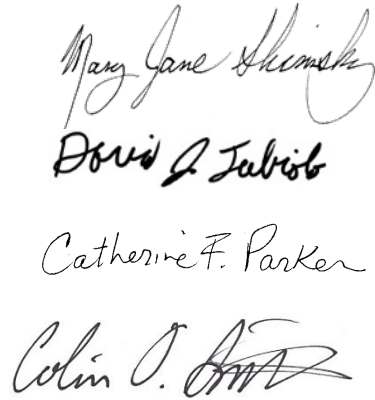 Mary Jane Shimsky
David J. Tubiolo
Catherine F. Parker
Colin O. Smith